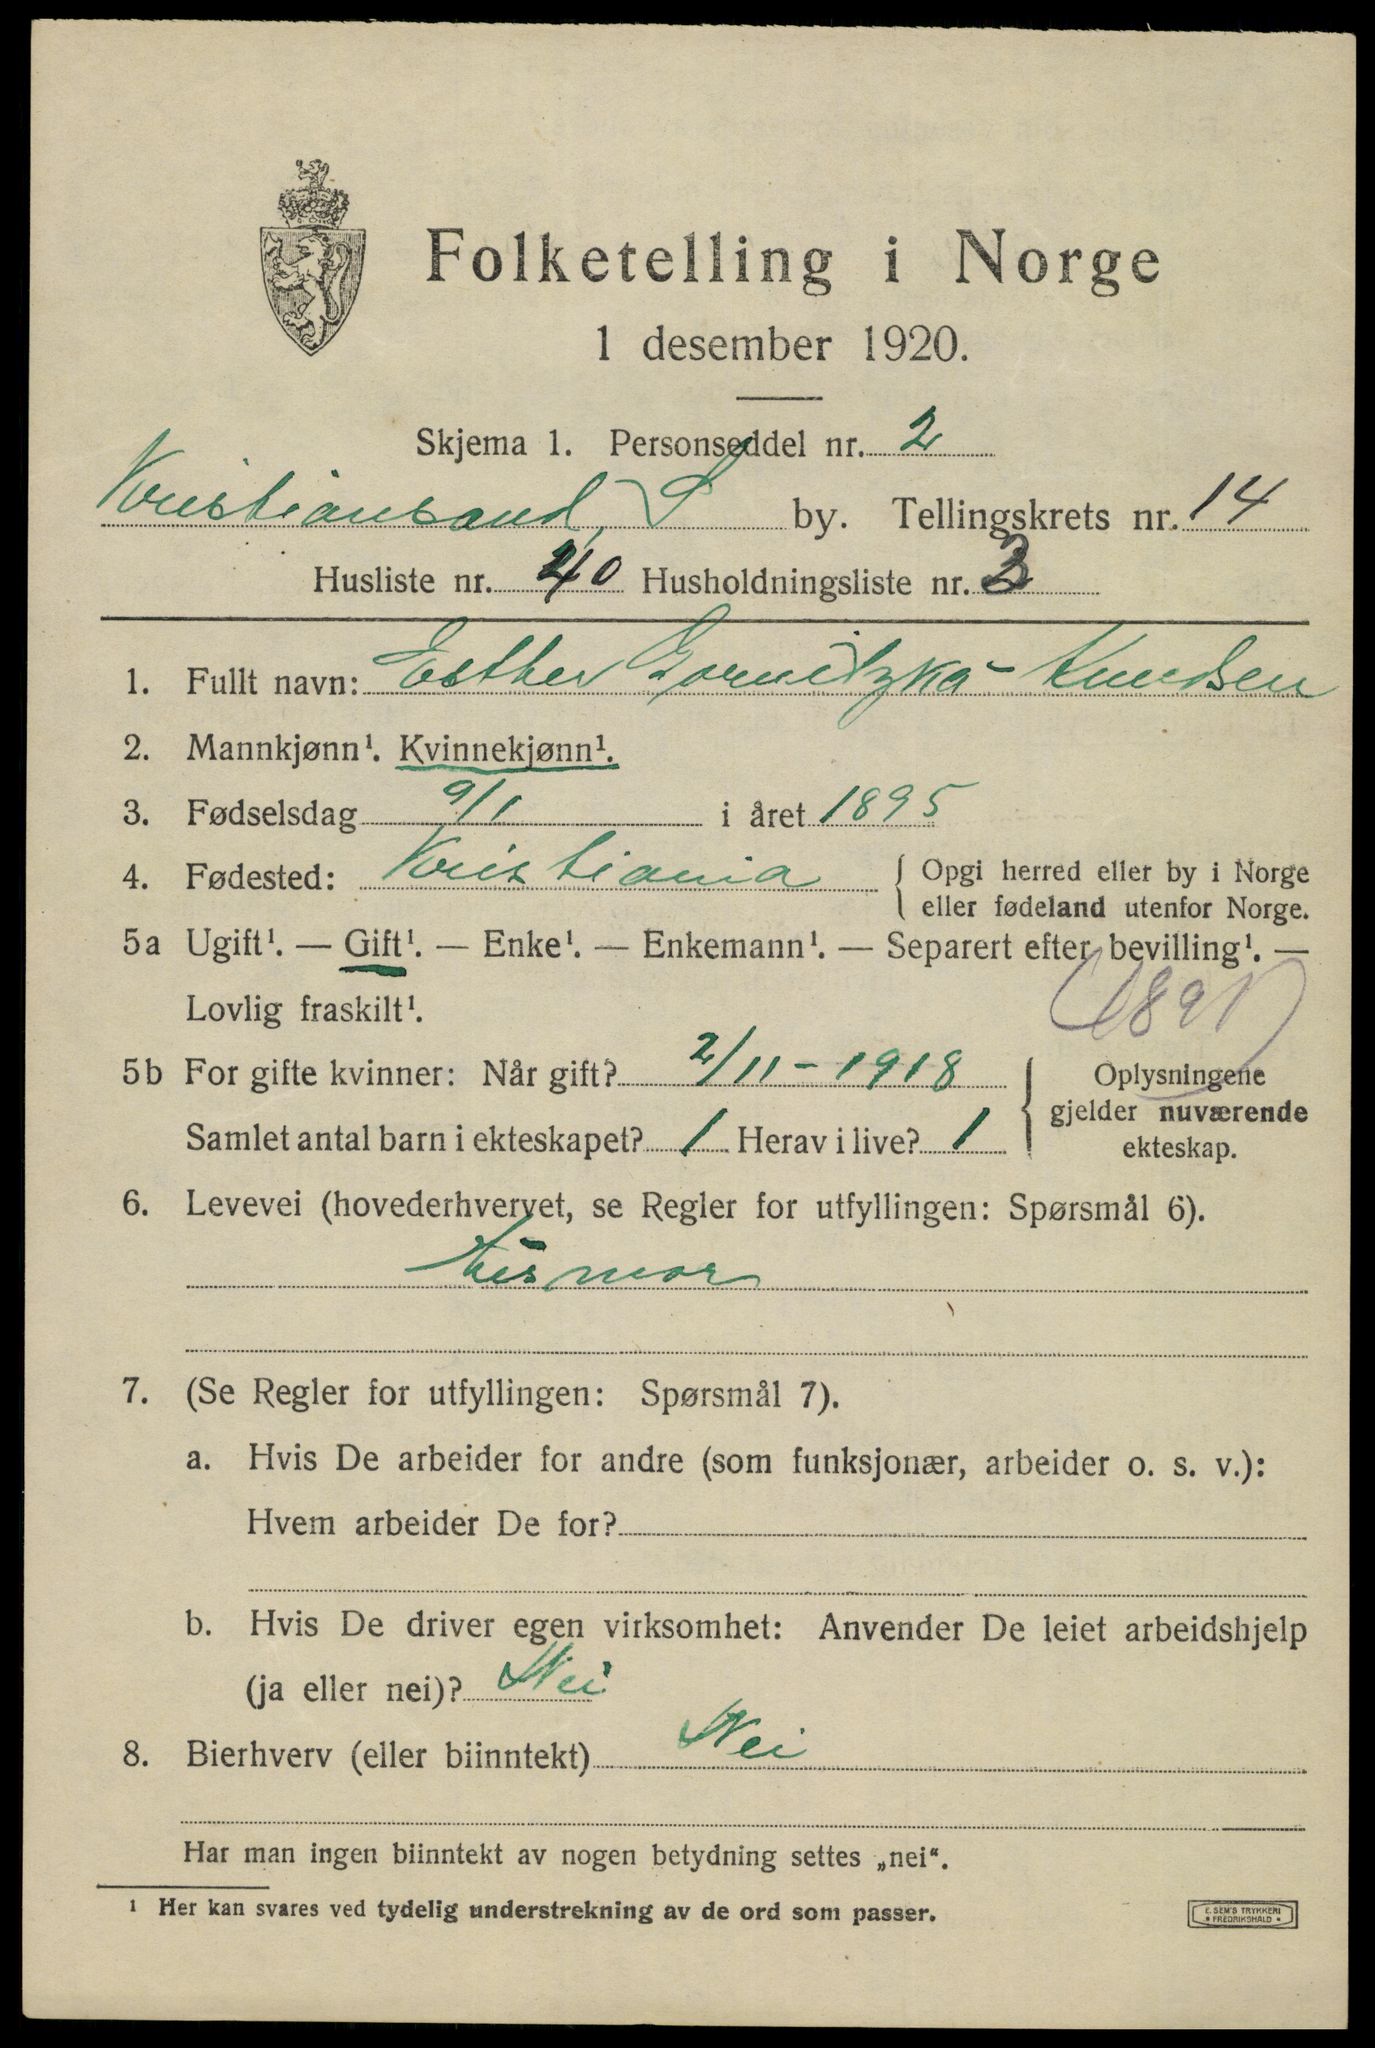 Folketelling i Norge
1 desember 1920.
Skjema 1. Personseddel nr. 2
Kristiansand, S by. Tellingskrets nr. 14
Husliste nr. 40 Husholdningsliste nr. 3
1. Fullt navn: Esther Gornitzka-Knudsen
2. Mannkjønn¹. Kvinnekjønn¹.
3. Fødselsdag 9/1 i året 1895
4. Fødested: Kristiania { Opgi herred eller by i Norge
eller fødeland utenfor Norge.
5a Ugift¹. — Gift¹. — Enke¹. — Enkemann¹. — Separert efter bevilling¹. —
Lovlig fraskilt¹.
5b For gifte kvinner: Når gift? 2/11-1918 { Oplysningene
gjelder nuværende
Samlet antal barn i ekteskapet? 1 Herav i live? 1
ekteskap.
6. Levevei (hovederhvervet, se Regler for utfyllingen: Spørsmål 6).
Husmor
7. (Se Regler for utfyllingen: Spørsmål 7).
a. Hvis De arbeider for andre (som funksjonær, arbeider o. s. v.):
Hvem arbeider De for?
b. Hvis De driver egen virksomhet: Anvender De leiet arbeidshjelp
(ja eller nei)? Nei
8. Bierhverv (eller biinntekt) Nei
Har man ingen biinntekt av nogen betydning settes „nei“.
¹ Her kan svares ved tydelig understrekning av de ord som passer.
E. SEM'S TRYKKERI
• FREDRIKSHALD •